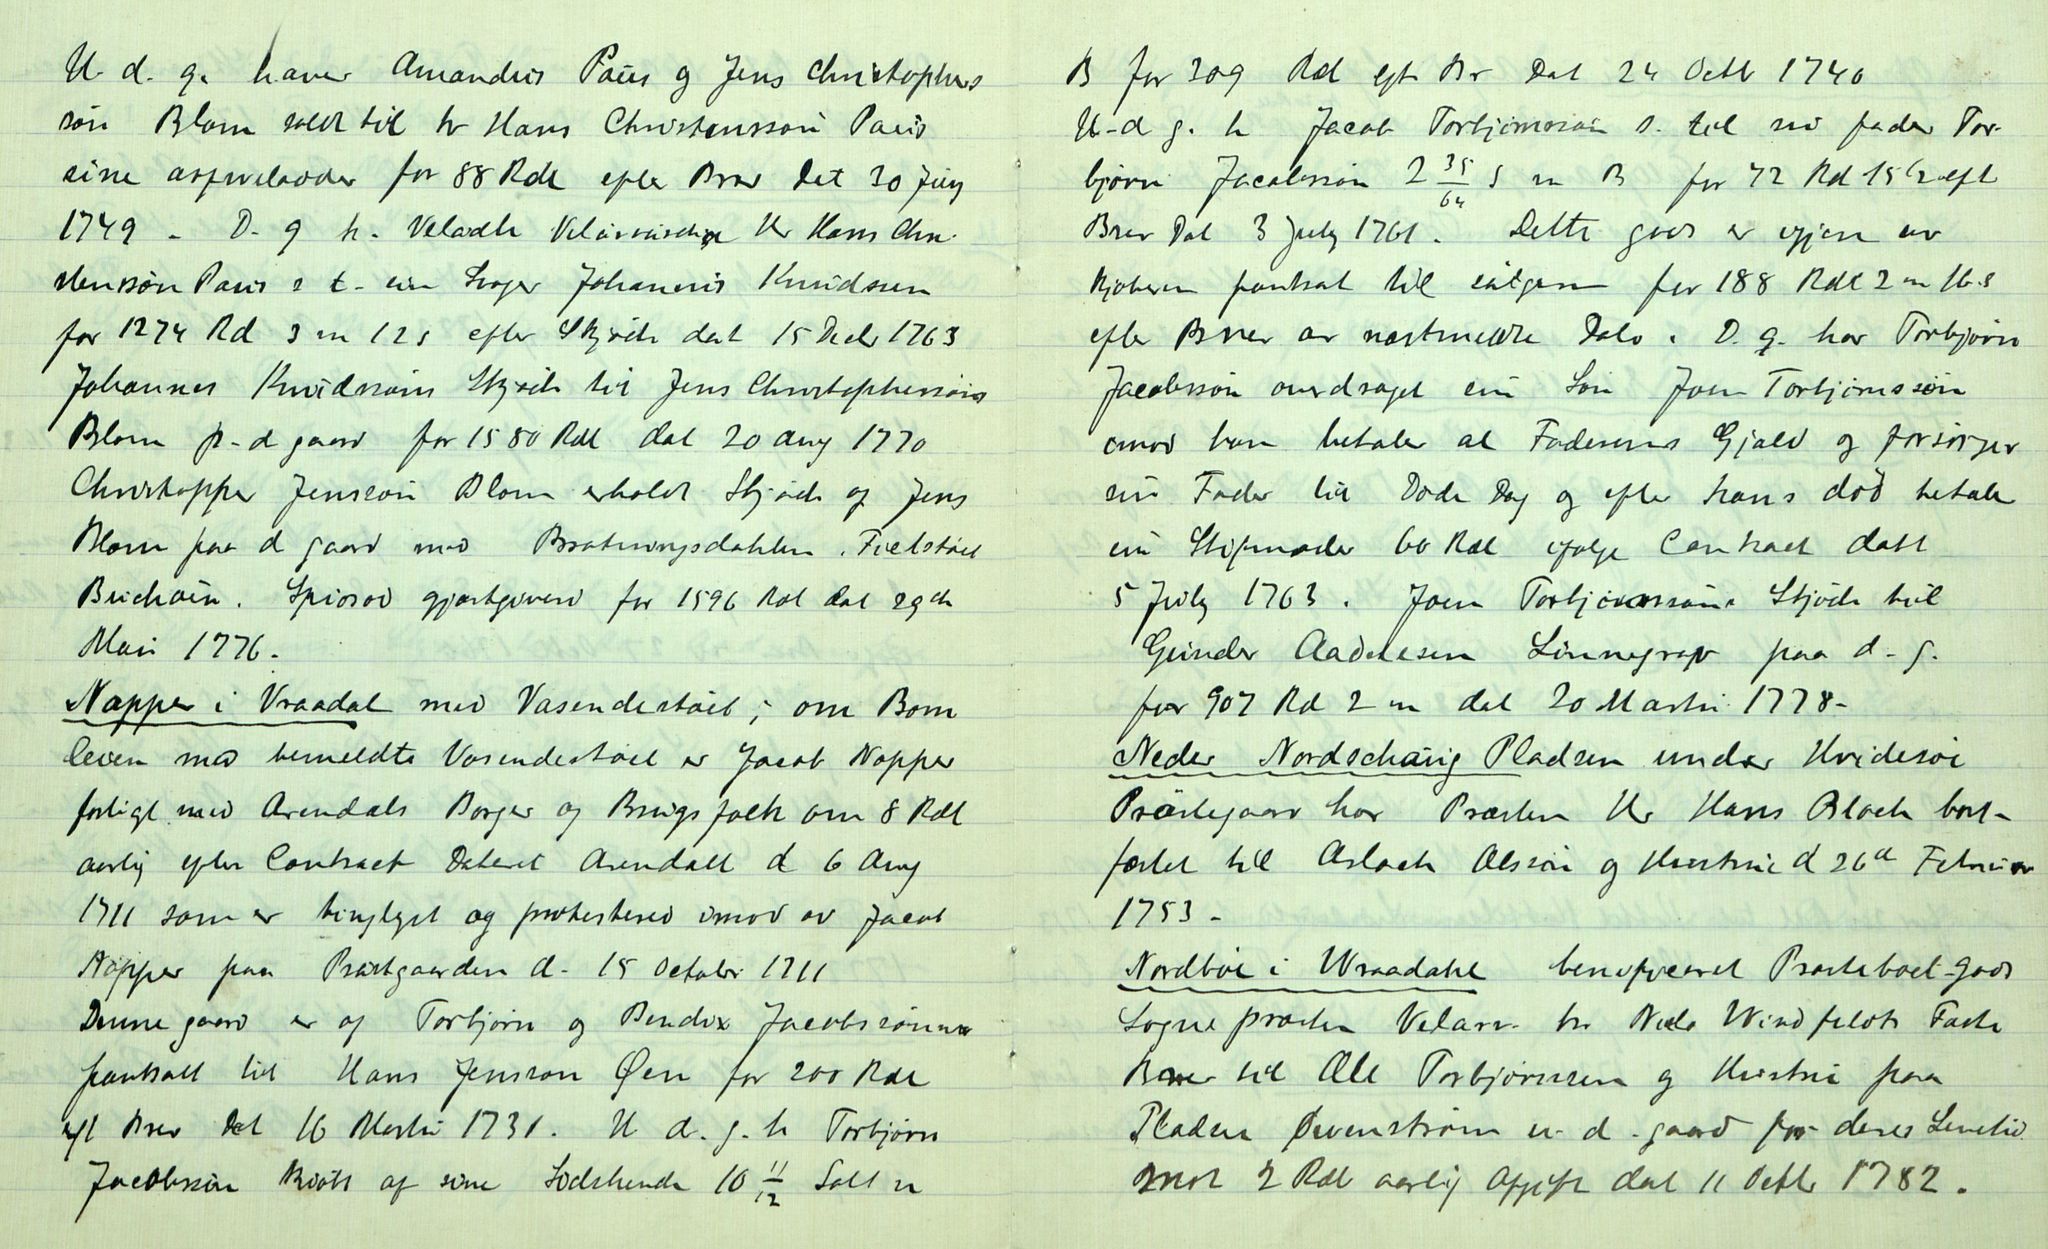 U. d. g. haver Amandus Paus og Jens Christophers
søn Blom soldt til hr Hans Christensøn Paus
sine arvelodder for 88 Rdl efter Brev Dat 30 July
1749 - D. g h. Velædle Hr Hans Chri-
stensøn Paus s t. sin Svoger Johannis Knudssen
for 1274 Rd 3 m 12 s efter Skjøde dat 15 Decbr 1763
Johannes Knudssøns Skjøde til Jens Christopherssøn
Blom p- d gaard for 1580 Rdl dat 20 aug 1770
Christopher Jenssøn Blom erholdt Skjøde af Jens
Blom paa d gaard med Bratningsdahlen . Fielstøil
. gjæstgiveri for 1596 Rdl dat 29de
Mai 1776.
Napper i Vraadal med Vasendestøil ; om Bom
leien med bemeldte Vasendestøil er Jacob Napper
forligt med Arendals Borger og Brugsfolk om 8 Rdl
aarlig efter Contract Dateret Arendall d 6 Aug
1711 som er tinglyst og protestered imod av Jacob
Napper paa Præstgaarden d- 15 October 1711
Denne gaard er af Torbjørn og Bendix Jacobssønner
pantsatt til Hans Jensson Øen for 200 Rdl
eft Brev Dat 16 Martii 1731. U d. g. h Torbjørn
Jacobssøn Kiøbt af sine Sødskende 10 11/12 Sett u
B for 309 Rdl eft Br Dat 24 Octb 1740
U-d g. h Jacob Torbjørnssøn s. til sin fader Tor-
bjørn Jacobssøn 2 35/64 S u B for 72 Rdl 15 s eft
Brev Dat 3 July 1761. Dette gods er igjen av
Kjøberen pantsat til sælgeren for 188 Rdl 2 m 16 s
efter Brev av næstmeldte Dato . D. g. har Torbjørn
Jacobssøn overdraget sin Søn Joen Torbjørnssøn
imod han betaler al Faderens Gjæld og forsørger
sin Fader til Døde Dag og efter hans død betale
sin Stifmoder 60 Rdl ifølge Contract datt
5 July 1763 . Joen Torbjørnssøns Skjøde til
Gunder Aadnesen Sinnegrav paa d- g.
for 907 Rd 2 m dat 20 Martii 1778-
Neder Nordschaug Pladsen under Hvidesøe
Præstegaard har Præsten Hr Hans Bloch bort-
fæstet til Aslach Olssøn og Hustrue d 26d Februar
1753-
Nordbøe i Wraadahl beneficeret Præstebol-gods
Sognepræsten Velærv. hr Niels Windfeldts Fæste
Brev til Ole Torbjørnssen og Hustrue paa
Pladsen Øvenstrøm u- d -gaard for deres Livstid
mot 2 Rdl aarlig Afgift dat 11 Octbr 1782.